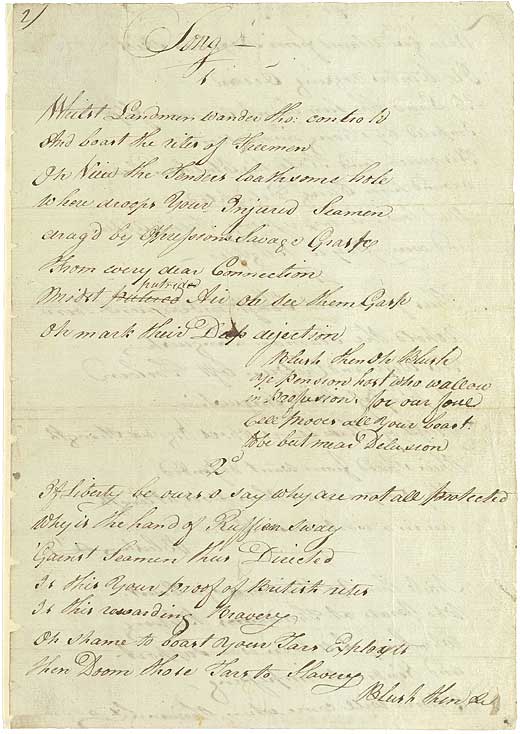 2)
Song –
1
Whilst Landmen wander tho: controld
And boast the rites of Freemen
Oh View the Tenders loathsome hole
Where droops Your Injured Seamen
dragd by Opressions Savage Grasp
From every dear Connection
Midst putered putred Air oh see them Gasp
Oh mark their Deep dejection
Blush then Oh Blush
ye Pension host who wallow
in Profusion. for our foul
Cell proves all Your boast
to be but mear Delusion
2d
If liberty be ours O say why are not all protected
Why is the hand of Ruffian sway
'Gainst Seamen thus Directed
Is this Your proof of British rites
Is this rewarding Bravery
Oh shame to boast Your Tars Exploits
then Doom those Tars to Slavery
Blush then &c